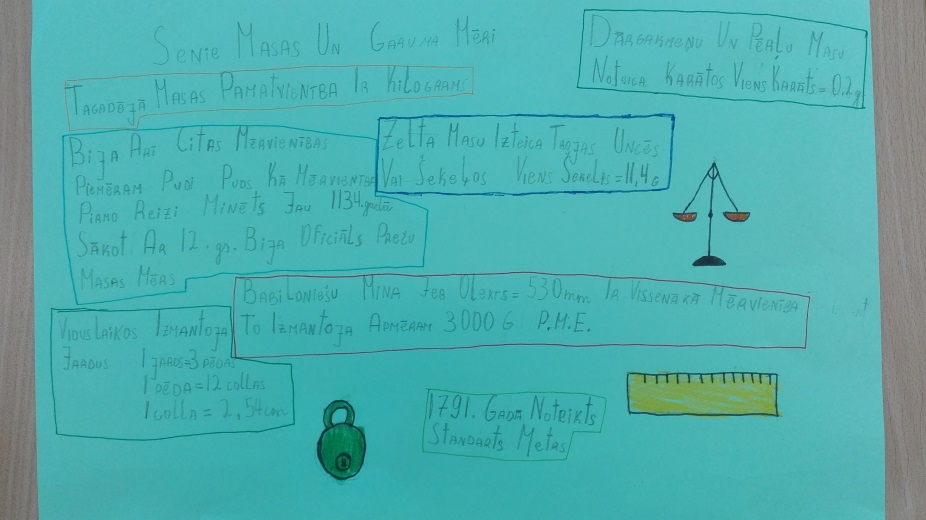 Senie Masas Un Garuma Mēri
Dārgakmeņu Un Pērļu Masu
Noteica Karātos Viens Karāts = 0.2g
Tagadējā Masas Pamatvienība Ir Kilograms
Bija Arī Citas Mērvienības
Piemēram Pudi Puds Kā Mērvienība
Pirmo Reizi Minēts Jau 1134. gadā
Sākot Ar 12. gs. Bija Oficiāls Preču
Masas Mērs
Zelta Masu Izteica Trojas Uncēs
Vai Šekeļos Viens Šekelis = 11,4 G
Babiloniešu Mina Jeb Olekts = 530mm Ir Vissenākā Mērvienība
To Izmantoja Apmēram 3000 G P.M.E.
Viduslaikos Izmantoja
Jardus 1 jards = 3 pēdas
1 pēda = 12 collas
1 colla = 2,54cm
1791. Gadā Noteikts
Standarts Metrs